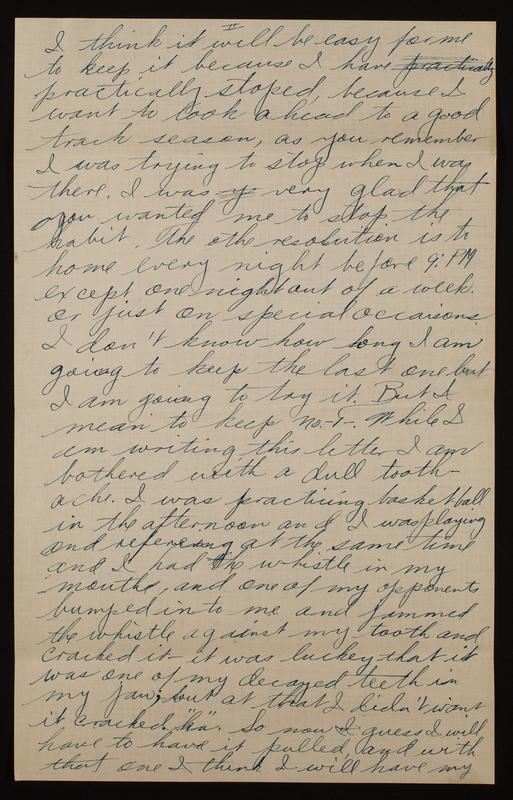 II
I think it will be easy for me
to keep it because I have practically
practically stoped, because I
want to look ahead to a good
track season, as you remember
I was trying to stop when I was
there. I was very glad that
you wanted me to stop the
habit. The othe resolution is to
home every night before 9: PM
except one night out of a week.
or just on special occaisons
I don't know how long I am
going to keep the last one but
I am going to try it. But I
mean to keep no.-1-. While I
am writing this letter I am
bothered with a dull tooth-
ache. I was practicing basket-ball
in the afternoon and I was playing
and refereeing at the same time
and I had the whistle in my
mouthe, and one of my opponents
bumped in to me and jammed
the whistle against my tooth and
cracked it it was luckey that it
was one of my decayed teeth in
my jaw, but at that I didn't want
it cracked, "ha". So now I guess I will
have to have it pulled, and with
that one I think I will have my